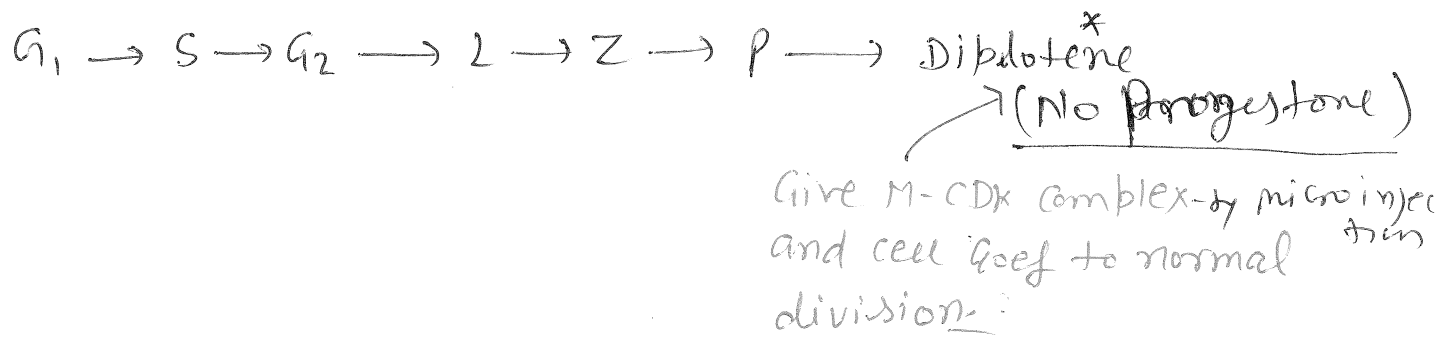 G₁ → S → G₂ → L → Z → P → Diplotene*
(No Progestone)
Give M-CDK Complex-by microinjec
tion
and cell Goes to normal
division.